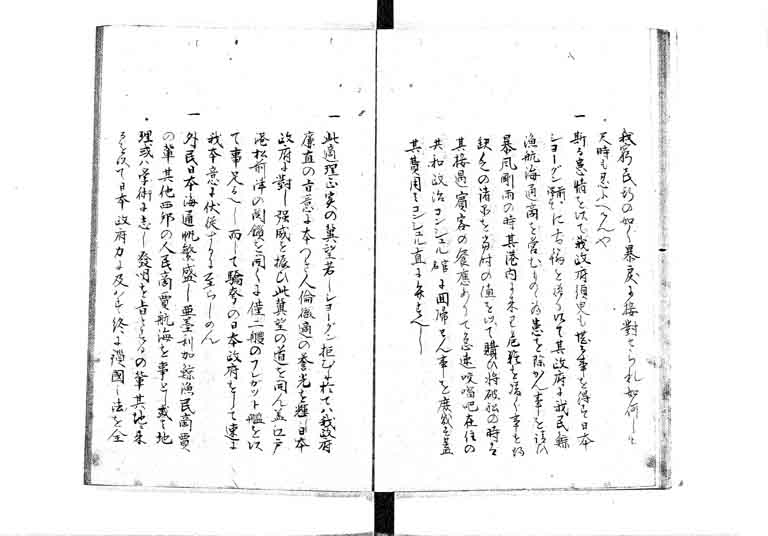 我窮民斯の如く暴戻に接對せられ如何して
天時も忍ふへけんや
一斯る患情を以て我政府須臾も堪る事を得す日本
ショーグン に書翰を送り以て其政府に我民鯨
漁航海通商を営むものゝ為患を除かん事を請ひ
暴風劇雨の時其港内に来り危難を避く事を得
缺乏の諸弗を當付の価を以て購ひ将破船の時は
其接遇賓客の饗應ありて急速咬𠺕吧在住の
共和政治コンシュル館に回帰せん事を庶幾す蓋
其費用はコンシュル直に弁すへし
一此適理正実の冀望若しショーグン拒むに於てハ我政府
廉直の旨意に本つき人倫徽適の誉光を輝日本
政府に對し強威を振ひ此冀望の道を開ん蓋江戸
港松前洋の関鎖を開くは僅二艘のフレガット艦を以
て事足るへし而して驕奢の日本政府をして速に
我本意に伏従するに至らしめん
一外民日本海通帆繁盛し亜墨利加鯨漁民商賈
の輩其他四邦の人民商賈航海を事とし或は地
理或ハ学術に志し発明を旨とするの輩其地に来
るを以て日本政府力に及かす終に鎖國の法を全